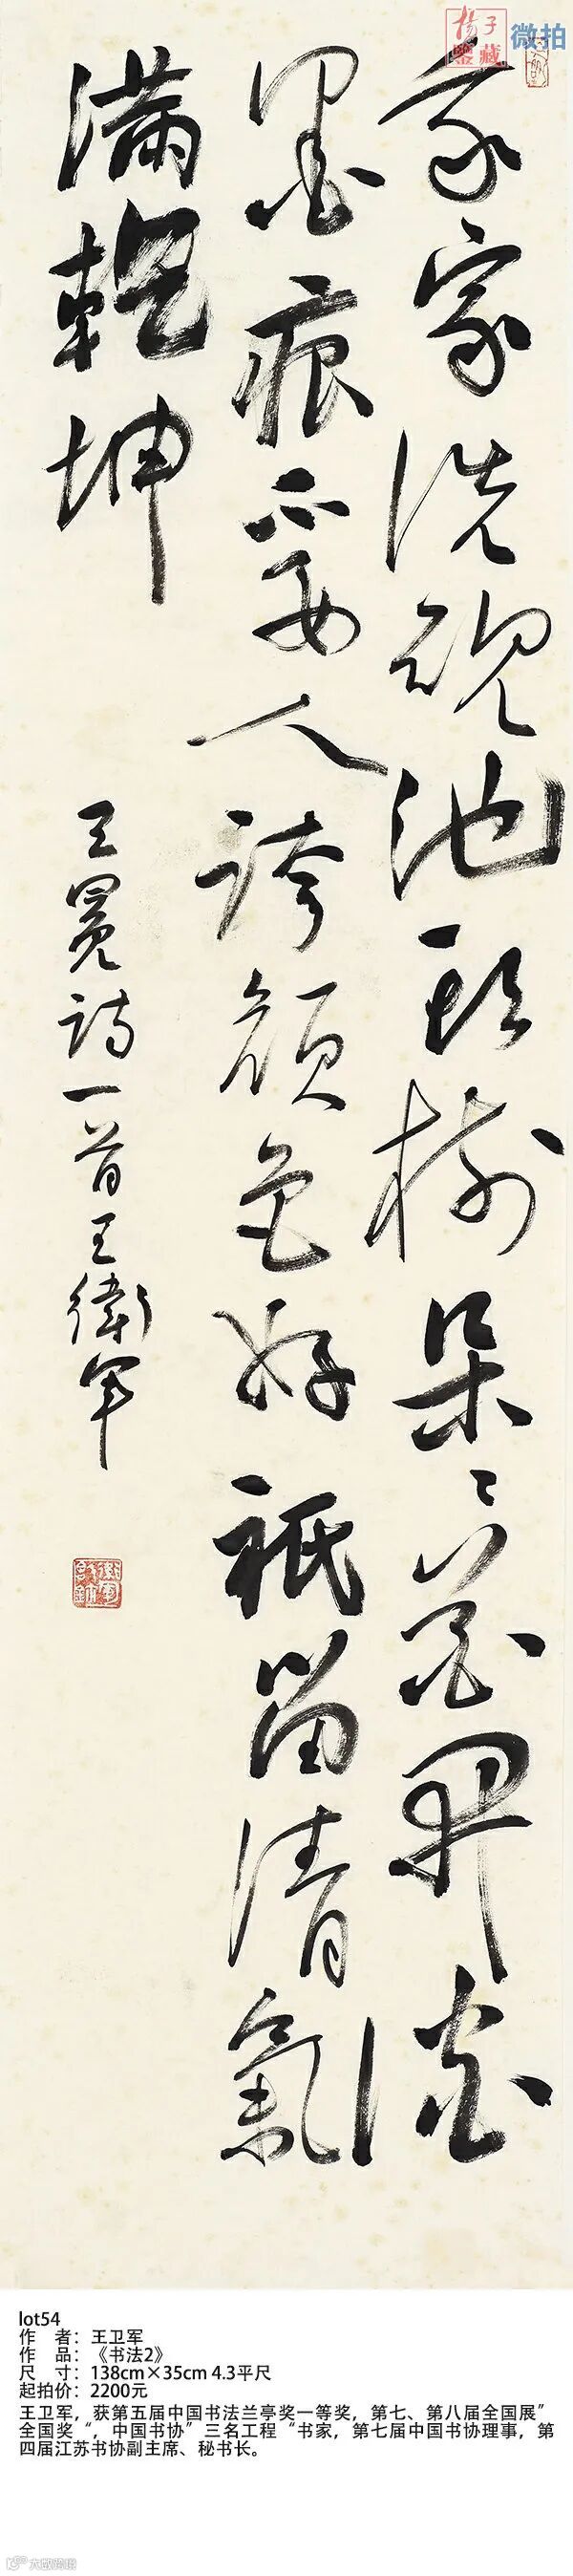 扬子
鑒藏
微拍
我家洗硯池頭樹朵々花開淡
墨痕不要人誇顏色好祇留清氣
滿乾坤
王冕詩一首王衛軍
lot54
作 者：王卫军
作 品：《书法2》
尺 寸：138cm×35cm 4.3平尺
起拍价：2200元
王卫军，获第五届中国书法兰亭奖一等奖，第七、第八届全国展”
全国奖“，中国书协”三名工程“书家，第七届中国书协理事，第
四届江苏书协副主席、秘书长。